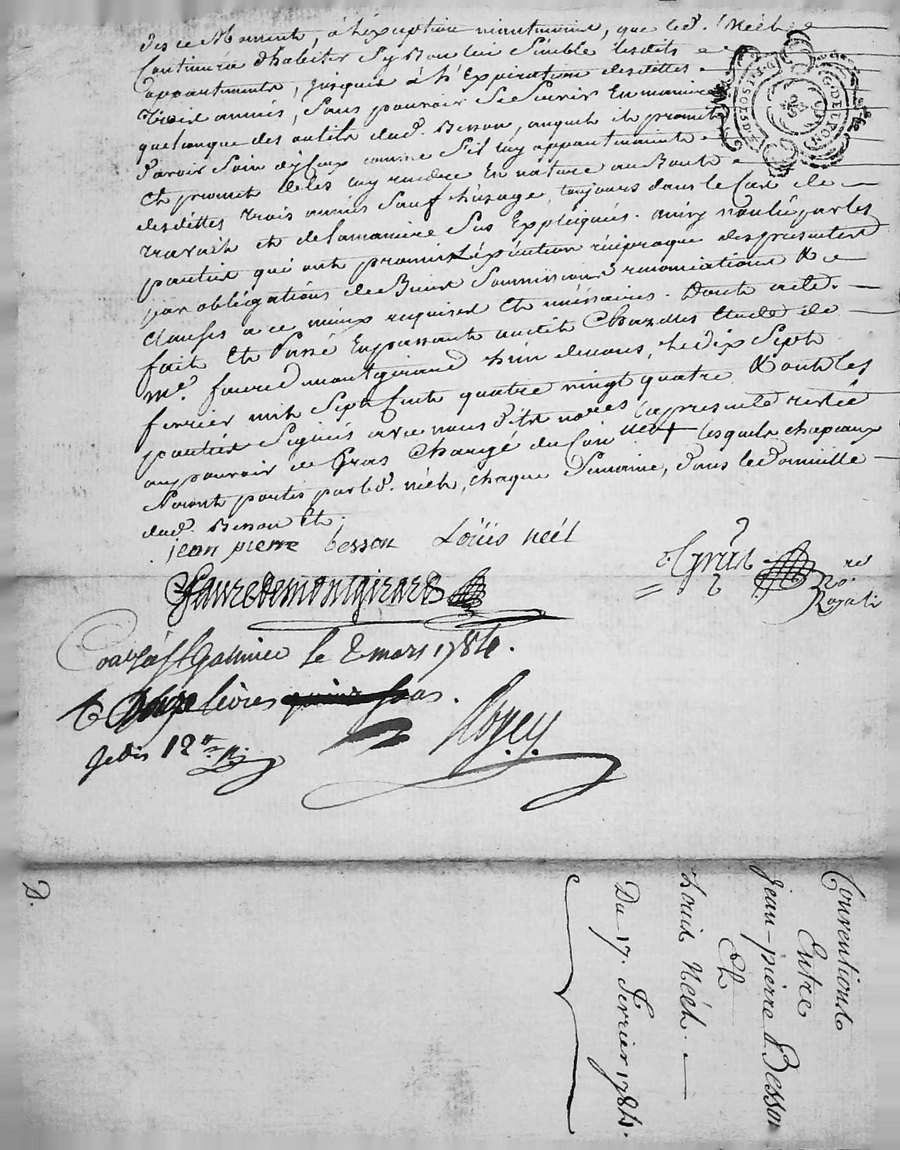 des ce Moment, à l'exception néantmoins, que led. Néel
Continuera d'habiter Sy Bon lui Semble lesdits
appartements, jusques à l'Expiration desdittes
Trois années, Sans pouvoir Se Servir En maniere
quelconque des outils dud. Besson, auquel il promet
d'avoir Soin d'yceux comme S'il luy appartenoient
Et promet de les luy rendre En nature au Boute
desdittes trois années Sauf l'usage, toujours dans le Cas de
travail et de la maniere Sus Expliqués. ainsy voulu par les
parties qui ont promis L'éxécution réciproque des presentes
par obligations de Biens Soumissions renonciations &
clauses a ce mieux requises Et nécéssaires. Dont acte.
fait Et Passé En passant audit Chazelles Etude de
me. faured montgirard L'un de nous, Le dix Sept
fevrier mil Sept Cent quatre vingt quatre Dont les
parties Signées avec nous dits no.res la presente restée
au pouvoir de Gras Chargé du Con.. lesquels chapeaux
Seront portés par led. néel, chaque Semaine, dans le domicille
dud. Besson Et.
jean pierre besson Loüis neél
fauredemontgirard
Gras
no.re
Royal
Con.lé à St Galmier le 2 mars 1784.
R Douze livres quinze sous.
Je dis 12
Conventions
Entre
Jean-pierre Besson
Et
Louis Néel.
Du 17. Fevrier 1784.
D.